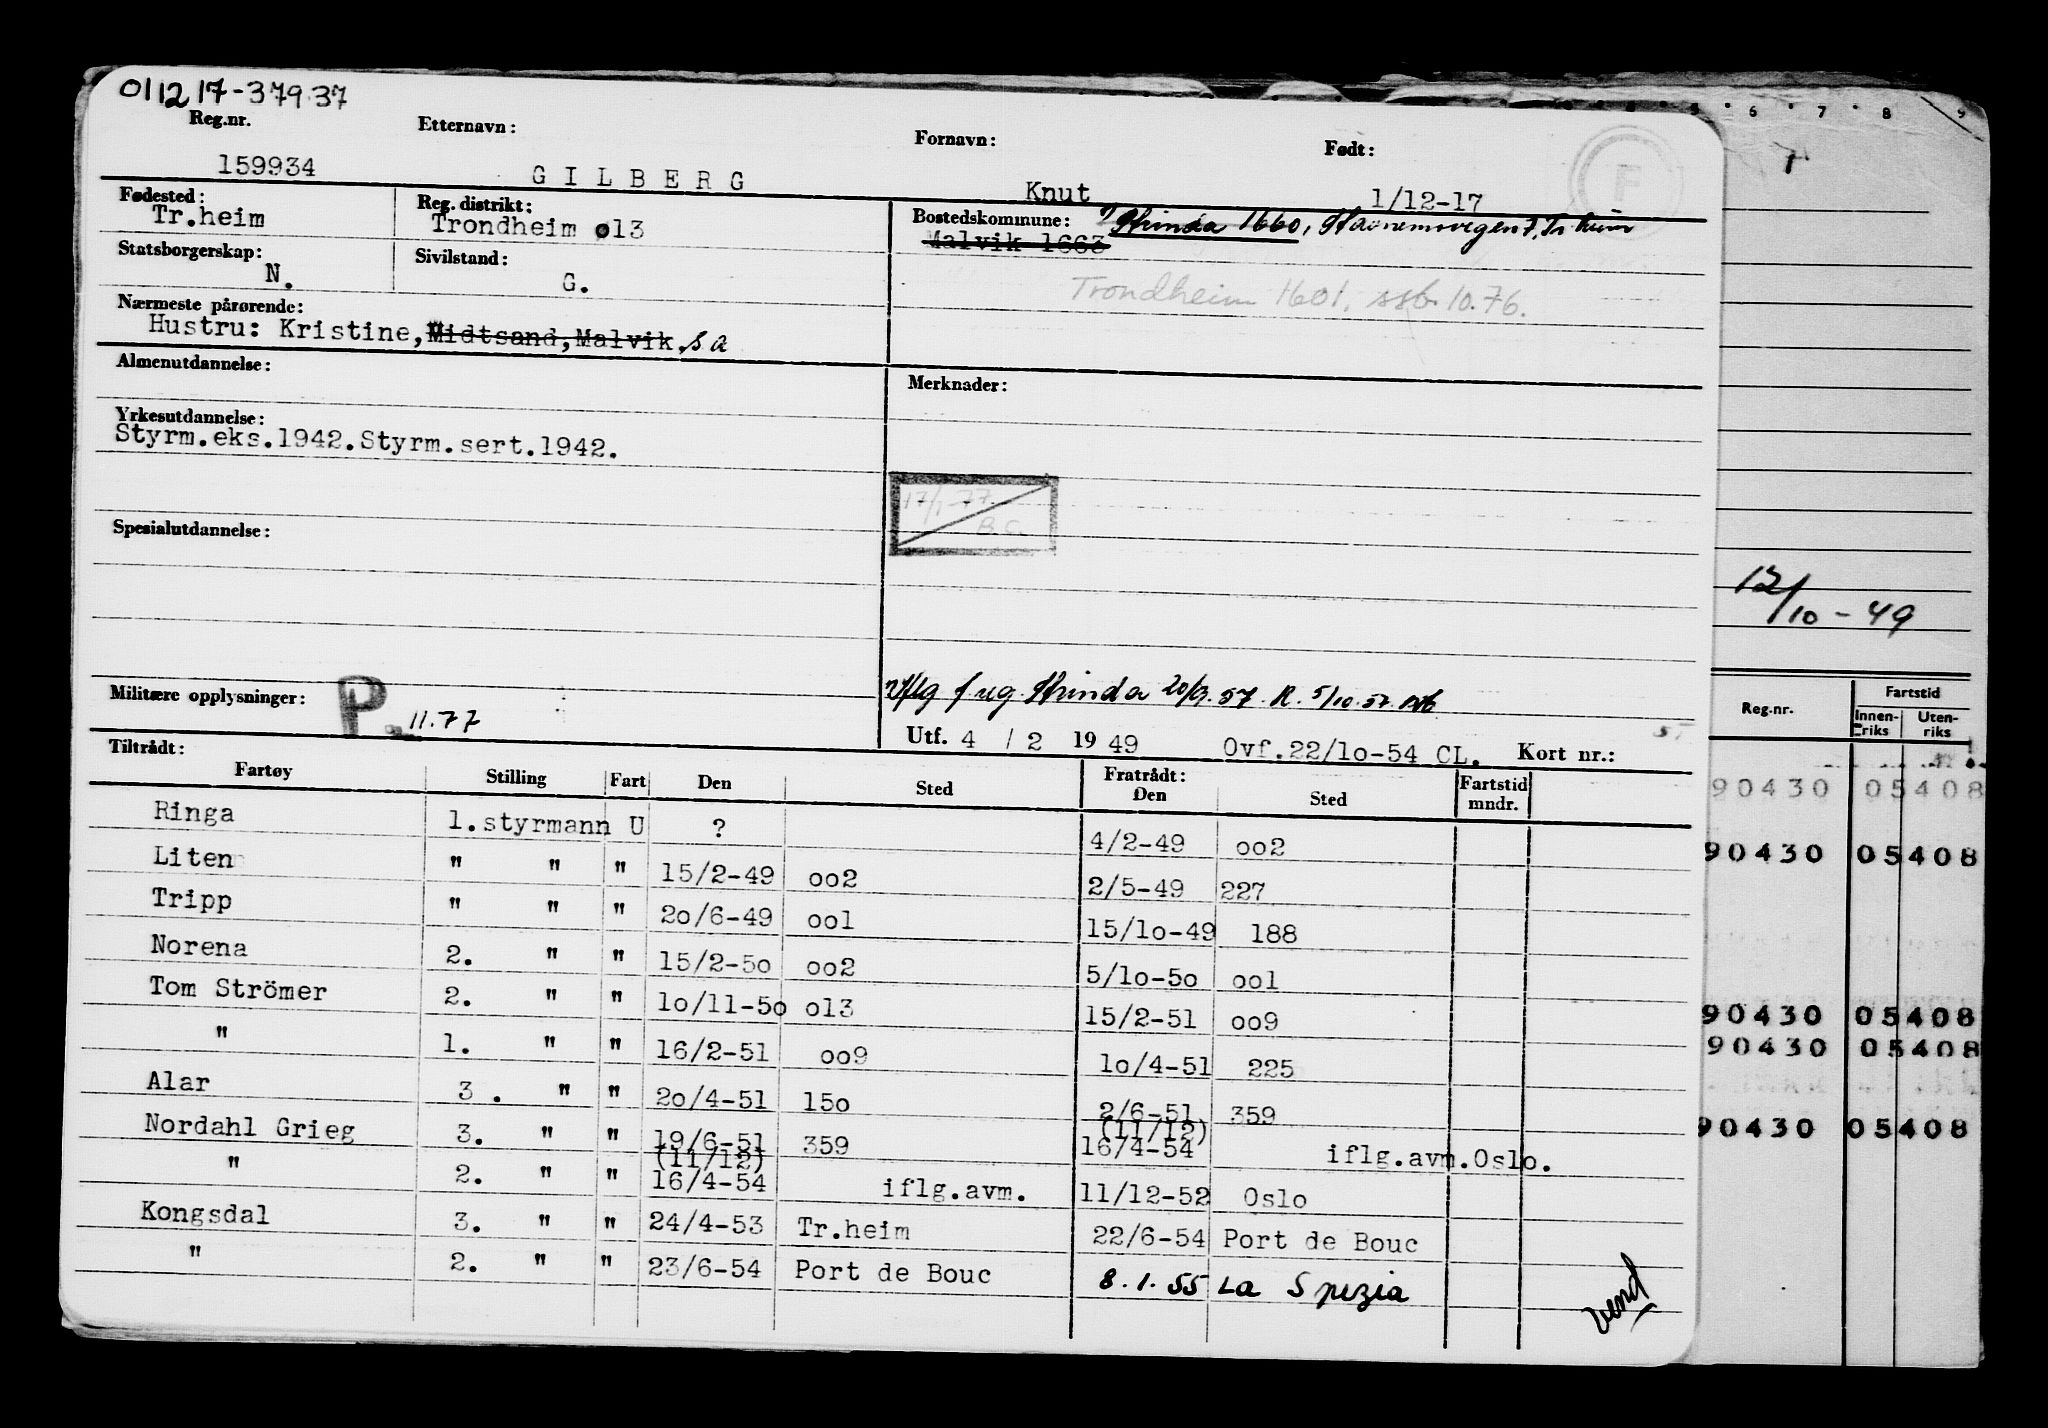 011217-37937
Reg.nr. Etternavn: Fornavn: Født:
159934 GILBERG Knut 1/12-17
F
Fødested: Reg. distrikt: Bostedskommune:
Tr.heim Trondheim ø13 Strinda 1660,
Malvik 1663
Statsborgerskap: Sivilstand:
N. G.
Trondheim 1601, ssb. 10.76.
Nærmeste pårørende:
Hustru: Kristine, Midtsand, Malvik. s a
Almenutdannelse: Merknader:
Yrkesutdannelse:
Styrm.eks.1942.Styrm.sert.1942.
17/1-77.
B.C.
Spesialutdannelse:
Militære opplysninger: P. 11.77
Utflg f reg Strinda 20/9.57. R. 5/10.57.
Utf. 4 / 2 19 49 Ovf.22/1o-54 CL. Kort nr.:
Tiltrådt: Fratrådt:
Fartøy Stilling Fart Den Sted Den Sted Fartstid mndr.
Ringa 1.styrmann U ? 4/2-49 oo2
Liten " " " 15/2-49 oo2 2/5-49 227
Tripp " " " 2o/6-49 oo1 15/1o-49 188
Norena 2. " " 15/2-5o oo2 5/1o-5o oo1
Tom Strömer 2. " " 1o/11-5o o13 15/2-51 oo9
" 1. " " 16/2-51 oo9 1o/4-51 225
Alar 3. " " 2o/4-51 15o 2/6-51 359
Nordahl Grieg 3. " " 19/6-51 359 (11/12) 16/4-54 iflg.avm.Oslo.
" 2. " " (11/12) 16/4-54 iflg.avm. 11/12-52 Oslo
Kongsdal 3. " " 24/4-53 Tr.heim 22/6-54 Port de Bouc
" 2. " " 23/6-54 Port de Bouc 8.1.55 La Spezia
vend
6 7 8 9
12/10-49
Reg.nr. Fartstid
Innen-riks Uten-riks
90430 05408
90430 05408
90430 05408
90430 05408
90430 05408